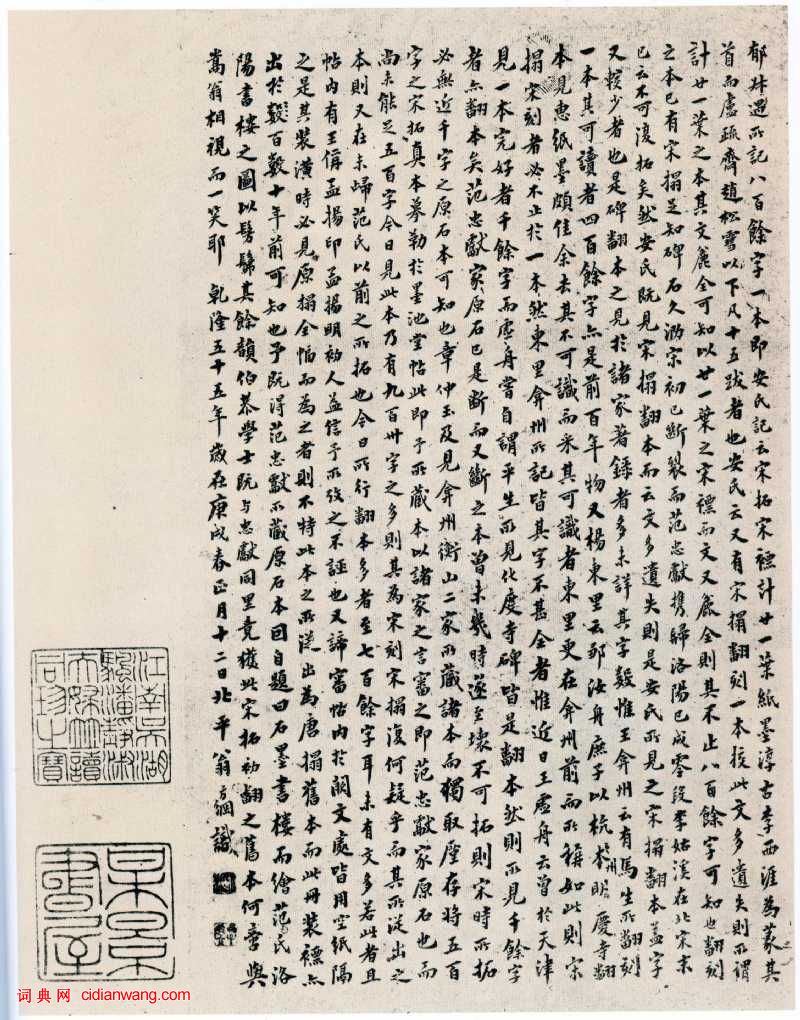 郁叔遇所記八百餘字一本即安氏記云宋拓宋裱計廿一葉紙墨淳古李西涯為篆其
首而盧疏齋趙松雪以下凡十五跋者也安氏云又有宋搨翻刻一本校此文多遺失則所謂
計廿一葉之本其文麄全可知以廿一葉之宋褾而文又麄全則其不止八百餘字可知也翻刻
之本已有宋搨足知碑石久泐宋初已斷裂而范忠獻攜歸洛陽已成零段李姑溪在北宋末
已云不可復拓矣然安氏既見宋搨翻本而云文多遺失則是安氏所見之宋搨翻本蓋字
又較少者也是碑翻本之見於諸家著錄者多未詳其字數惟王弇州云有馬生所翻刻
一本其可讀者四百餘字亦是前百年物又楊東里云鄒汝舟庶子以杭州本明慶寺翻
本見惠紙墨頗佳余去其不可識而采其可識者東里更在弇州前而所稱如此則宋
搨宋刻者必不止於一本然東里弇州所記皆其字不甚全者惟近日王虛舟云曾於天津
見一本完好者千餘字而虛舟嘗自謂平生所見化度寺碑皆是翻本然則所見千餘字
者亦翻本矣范忠獻家原石已是斷而又斷之本曾未幾時遂至壞不可拓則宋時所拓
必無近千字之原石本可知也章仲玉及見弇州衡山二家所藏諸本而獨取壓存將五百
字之宋拓真本摹勒於墨池堂帖此即予所藏本以諸家之言審之即范忠獻家原石也而
尚未能足五百字今日見此本乃有九百卅字之多則其為宋刻宋搨復何疑乎而其所從出之
本則又在未歸范氏以前之所拓也今日所行翻本多者至七百餘字耳未有文多若此者且
帖內有王偁孟揚印孟揚明初人益信予所攷之不誣也又諦審帖內於闕文處皆用空紙隔
之是其裝潢時必見原搨全幅而為之者則不特此本之所從出為唐搨舊本而此冊裝褾亦
出於數百數十年前可知也予既得范忠獻所藏原石本因自題曰石墨書樓而繪范氏洛
陽書樓之圖以髣髴其餘韻伯恭學士既与忠獻同里竟獲此宋拓初翻之舊本何啻與
嵩翁相視而一笑耶 乾隆五十五年歲在庚戌春正月十二日北平翁方綱識
江南吳湖
颿潘靜淑
夫婦並讀
同珍之寶
某景
書屋
词典网 cidianwang.com